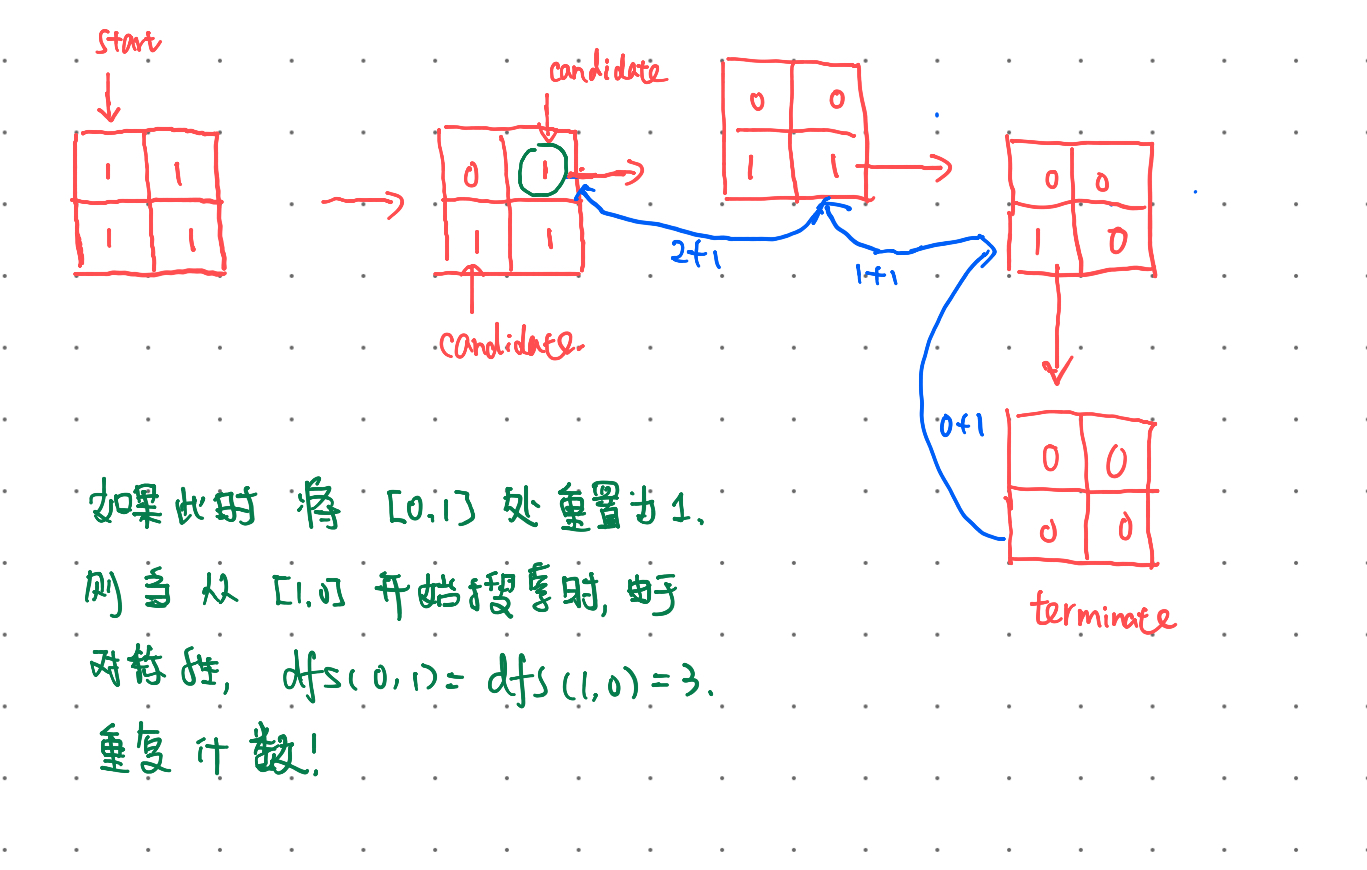 start
candidate
1 1
1 1
0 1
1 1
candidate.
0 0
1 1
0 0
1 0
2+1
1+1
0+1
0 0
0 0
terminate
如果此时 将 [0,1] 处重置为1.
则当从 [1,0] 开始搜索时, 由于
对称性, dfs(0,1)= dfs(1,0)=3.
重复计数!